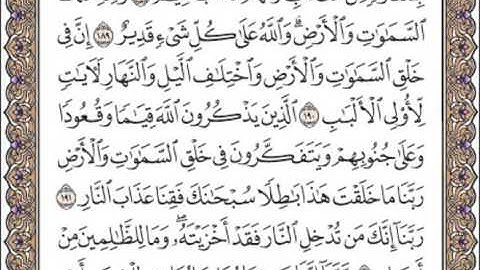 السَّمَٰوَٰتِ وَالْأَرْضِ ۗ وَاللَّهُ عَلَىٰ كُلِّ شَىْءٍ قَدِيرٌ ١٨٩ إِنَّ فِى
خَلْقِ السَّمَٰوَٰتِ وَالْأَرْضِ وَاخْتِلَٰفِ الَّيْلِ وَالنَّهَارِ لَءَايَٰتٍ
لِّأُو۟لِى الْأَلْبَٰبِ ١٩٠ الَّذِينَ يَذْكُرُونَ اللَّهَ قِيَٰمًا وَقُعُودًا
وَعَلَىٰ جُنُوبِهِمْ وَيَتَفَكَّرُونَ فِى خَلْقِ السَّمَٰوَٰتِ وَالْأَرْضِ
رَبَّنَا مَا خَلَقْتَ هَٰذَا بَٰطِلًا سُبْحَٰنَكَ فَقِنَا عَذَابَ النَّارِ ١٩١
رَبَّنَآ إِنَّكَ مَن تُدْخِلِ النَّارَ فَقَدْ أَخْزَيْتَهُۥ ۖ وَمَا لِلظَّٰلِمِينَ مِنْ